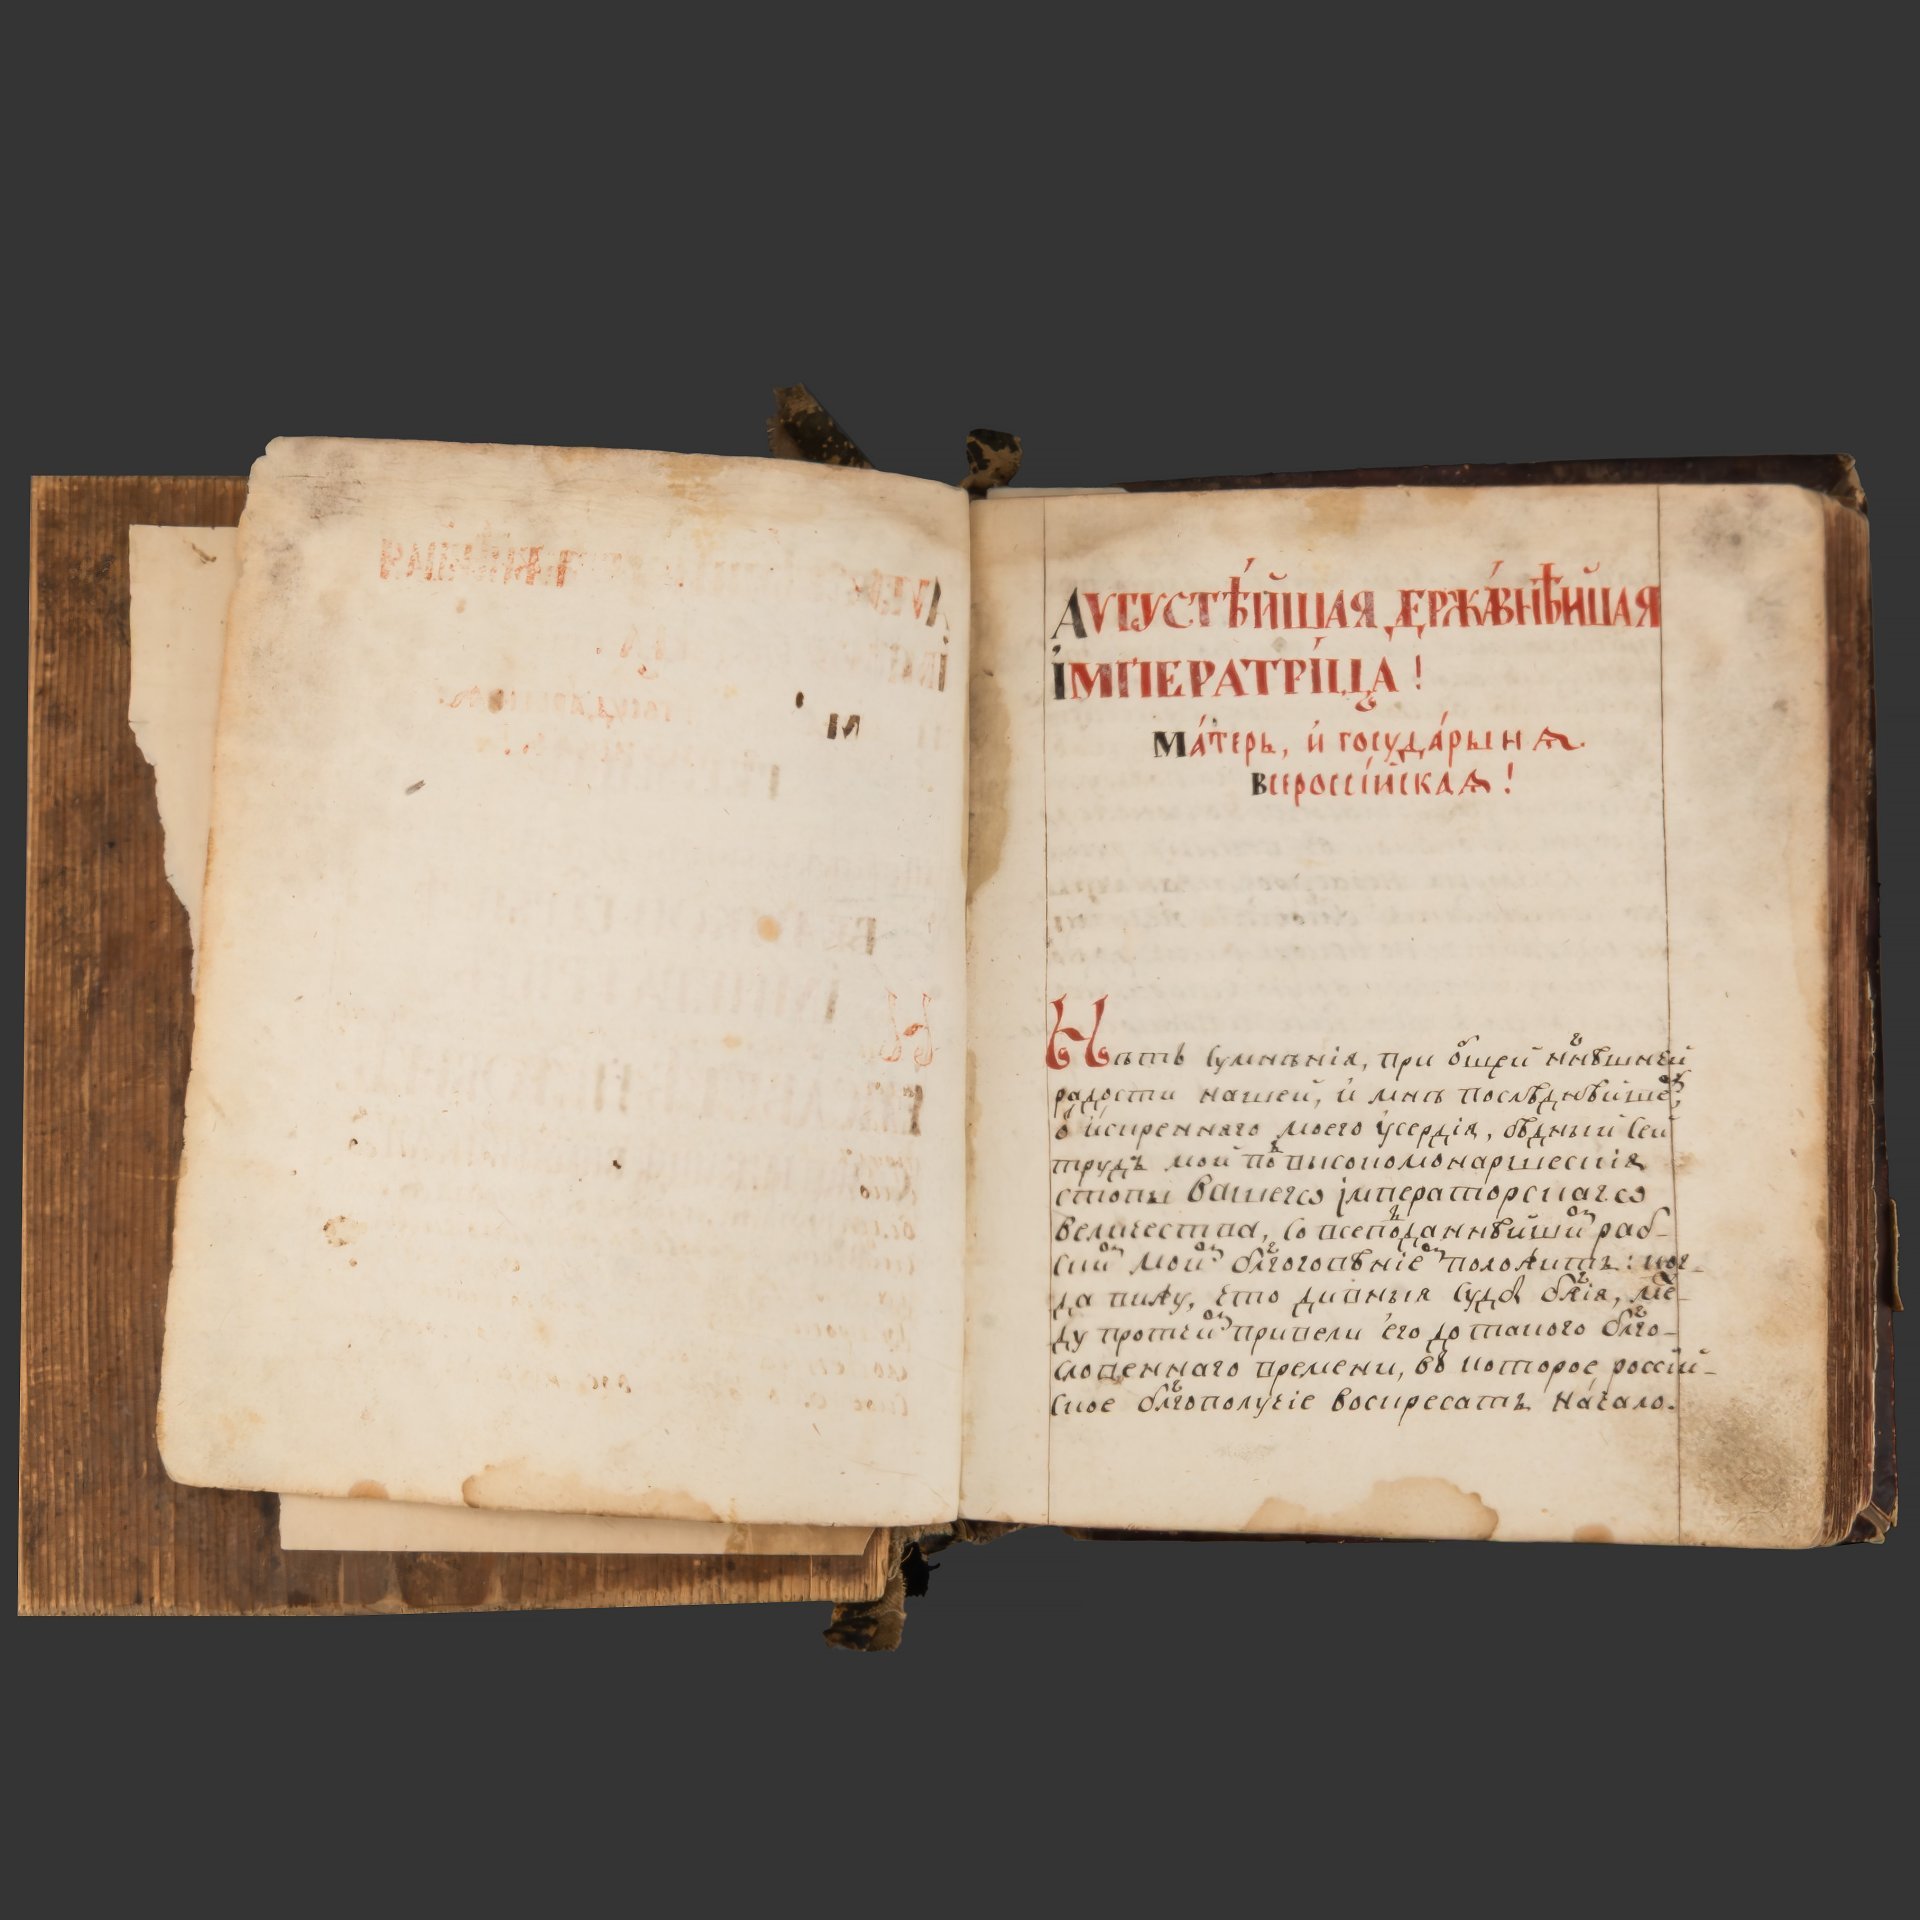 Аѵгустѣ́йшая держа́внѣйшая
і҆мператрі́ца!
ма́терь, и҆ госуда́рынѧ
всероссі́йскаѧ!
Нѣтъ сумнѣнія, при о҆бщей нн҃ѣшней
радости нашей, и҆ мнѣ послѣднѣйше,
ѿ искреннаго моего усердія, бѣдный сей
трудъ мой под высокомонаршескія
стопы вашегѡ імператорскагѡ
величества, со всеподаннѣйшим раб-
ским моим блг҃оговѣніем положить: ког-
да вижу, что дивныя судбы бж҃ія, меж-
ду протчим привели его до такого блг҃о-
словеннаго времени, въ которое россій-
ское блг҃ополучіе воскресать на́чало.